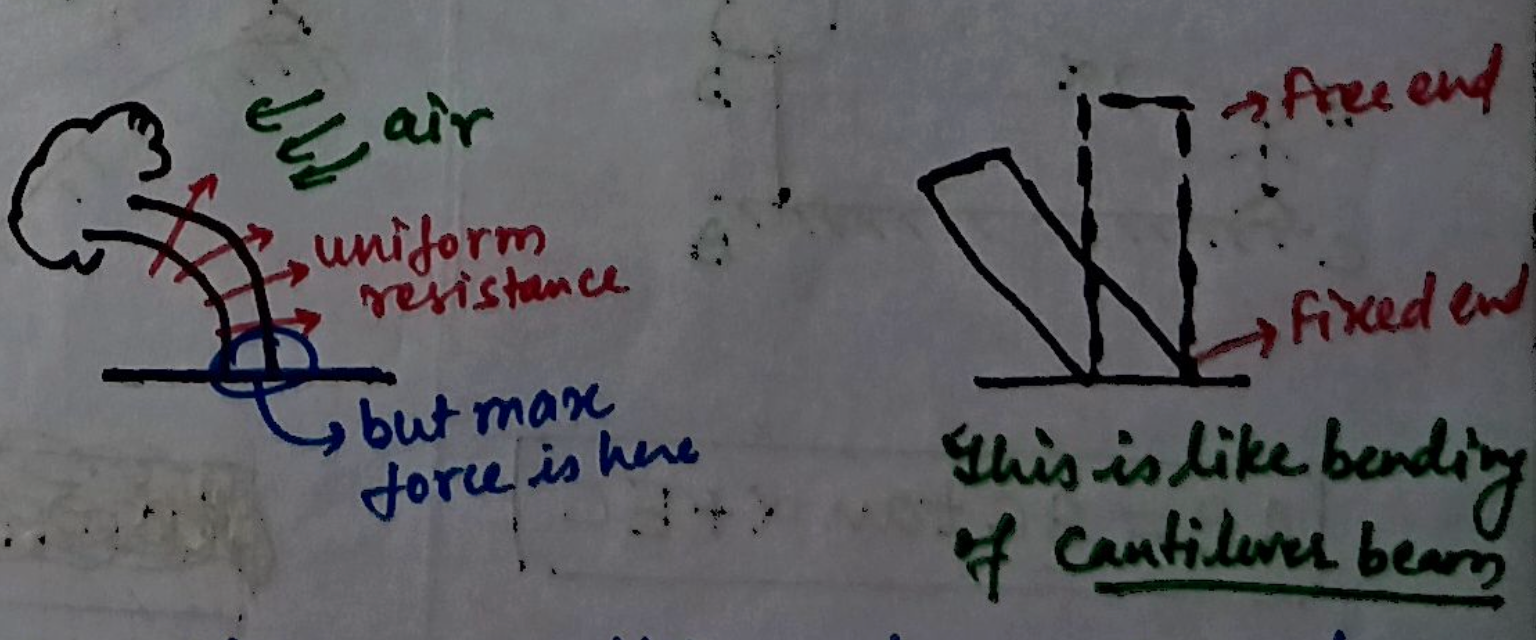 air
uniform
resistance
but max
force is here
free end
fixed end
This is like bending
of cantilever beam